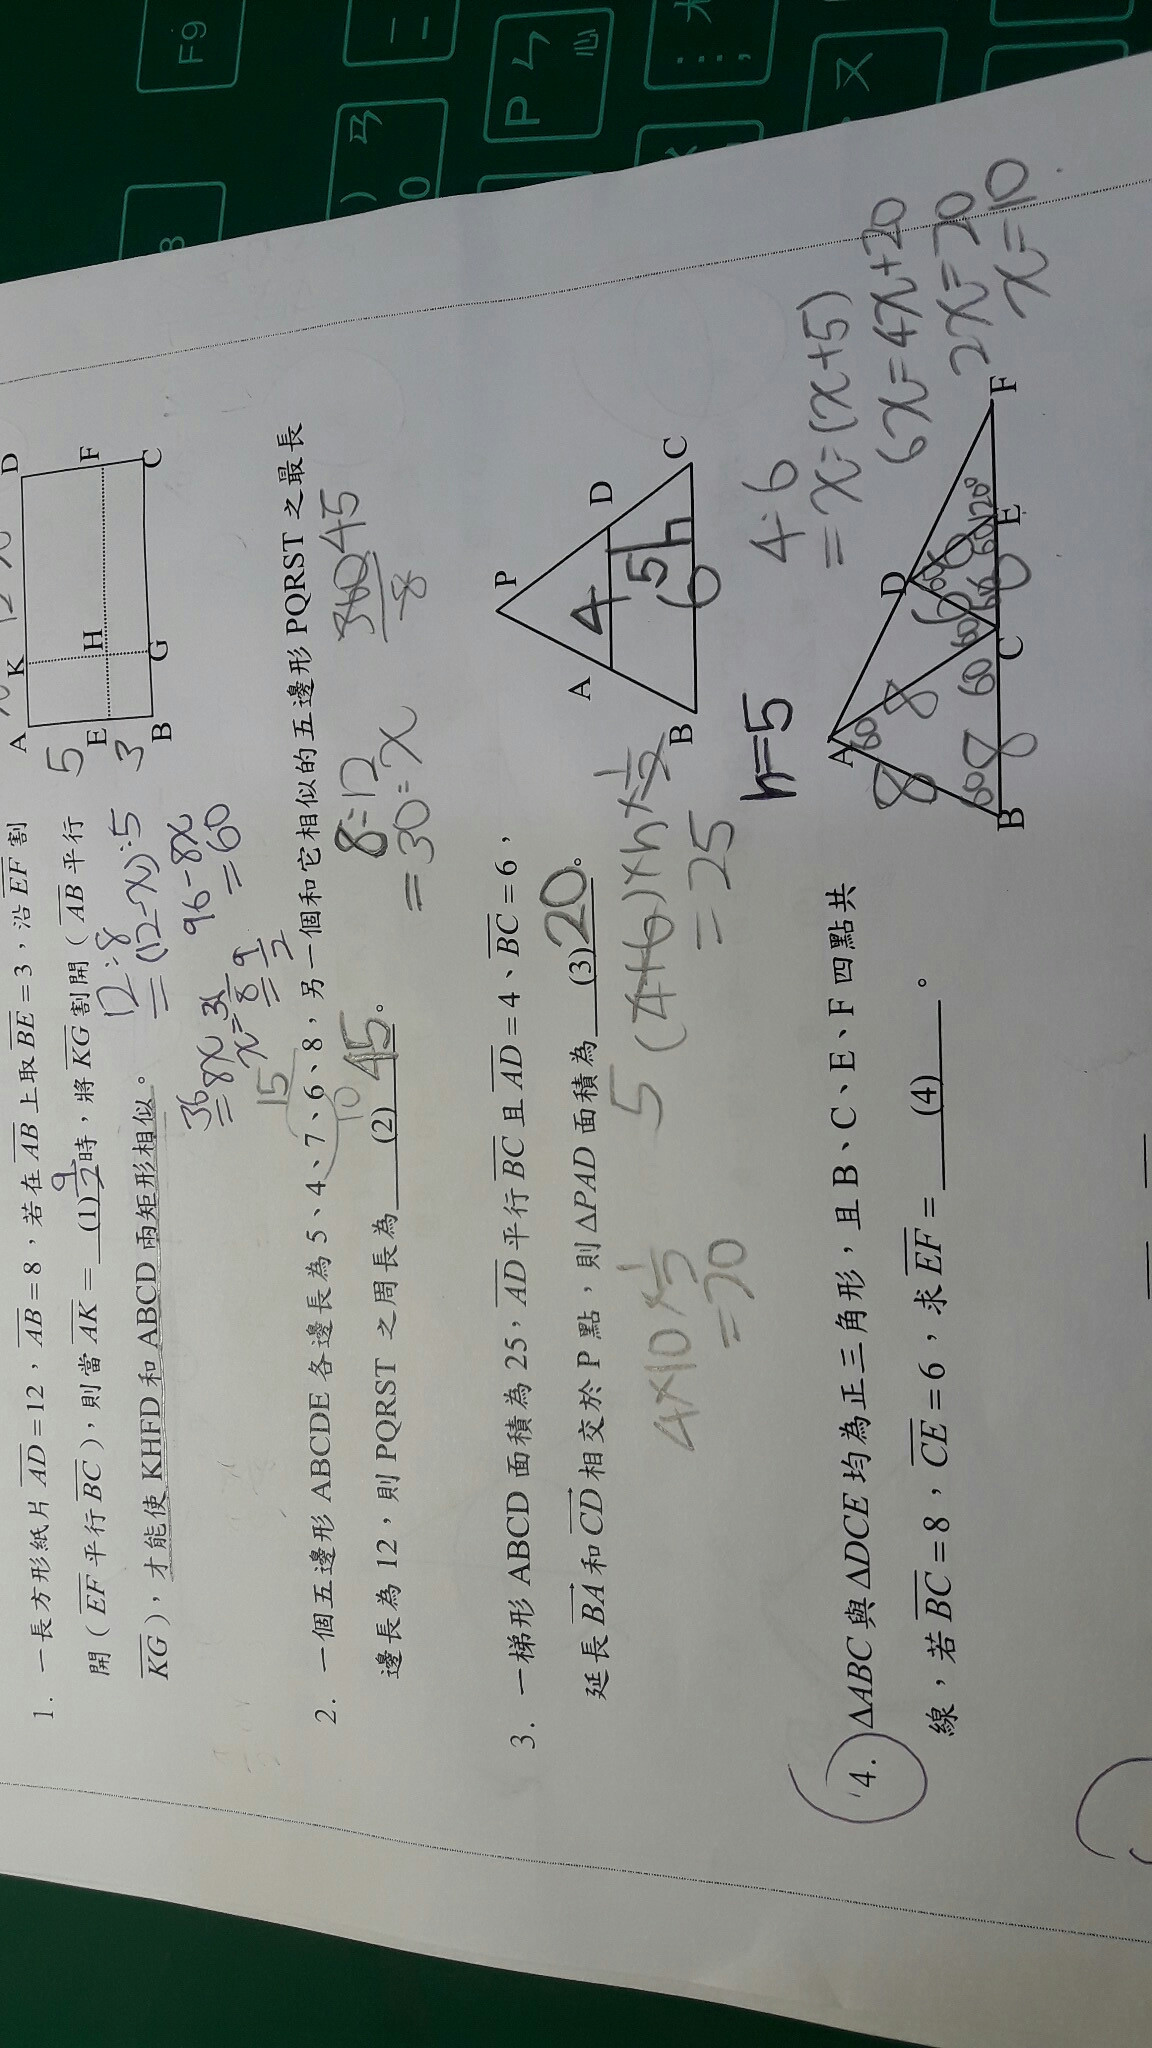 1. 一長方形紙片 AD=12，AB=8，若在 AB 上取 BE=3，沿 EF 割
開（EF 平行 BC），則當 AK = (1) 9/2 時，將 KG 割開（AB 平行
KG），才能使 KHFD 和 ABCD 兩矩形相似。
A K D
5
E H F
3
B G C
12:8
=(12-x):5
96-8x
=60
36
=8x
x=36/8
=9/2
2. 一個五邊形 ABCDE 各邊長為 5、4、7、6、8，另一個和它相似的五邊形 PQRST 之最長
邊長為 12，則 PQRST 之周長為 (2) 45 。
15
10
8:12
=30:x
360 45
8
3. 一梯形 ABCD 面積為 25，AD 平行 BC 且 AD=4、BC=6，
延長 BA 和 CD 相交於 P 點，則 ΔPAD 面積為 (3) 20 。
P
A 4 D
5 h
B 6 C
5
(4+6)×h×1/2
=25
h=5
4×10×
=20
4:6
=x=(x+5)
6x=4x+20
2x=20
x=10
4. ΔABC 與 ΔDCE 均為正三角形，且 B、C、E、F 四點共
線，若 BC=8，CE=6，求 EF = (4) 。
A D
60
8 8 6 6
60 8 60 60 60 6 60 120°
B C E F
F9
P ㄣ
心
ㄢ
)
0
ㄡ